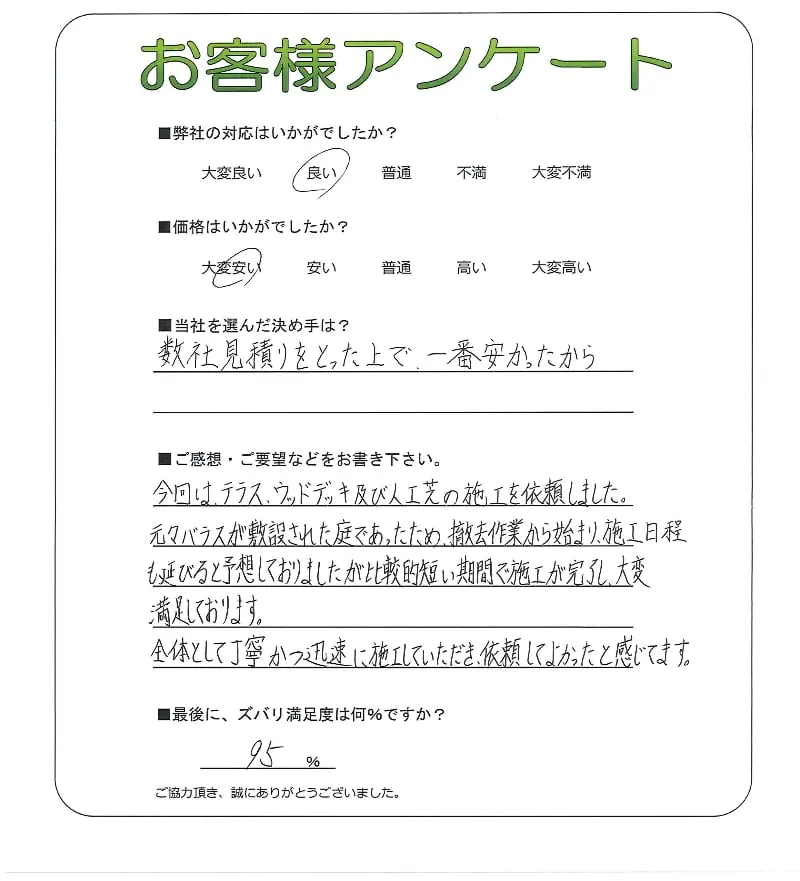 お客様アンケート
■弊社の対応はいかがでしたか？
大変良い 良い 普通 不満 大変不満
■価格はいかがでしたか？
大変安い 安い 普通 高い 大変高い
■当社を選んだ決め手は？
数社見積りをとった上で、一番安かったから
■ご感想・ご要望などをお書き下さい。
今回は、テラス、ウッドデッキ及び人工芝の施工を依頼しました。
元々バラスが敷設された庭であったため、撤去作業から始まり、施工日程
も延びると予想しておりましたが比較的短い期間で施工が完了し、大変
満足しております。
全体として丁寧かつ迅速に施工していただき、依頼してよかったと感じてます。
■最後に、ズバリ満足度は何%ですか？
95 %
ご協力頂き、誠にありがとうございました。